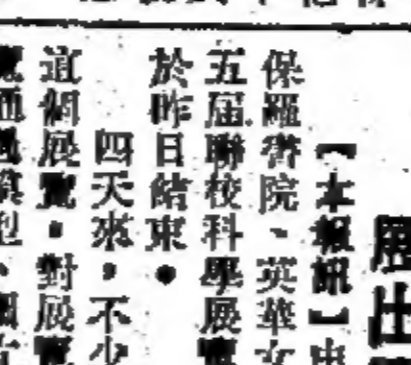 展出
【本報訊】由
保羅書院、英華女
五屆聯校科學展覽
於昨日結束。
四天來，不少
這個展覽。對展覽
覽通過模型、圖